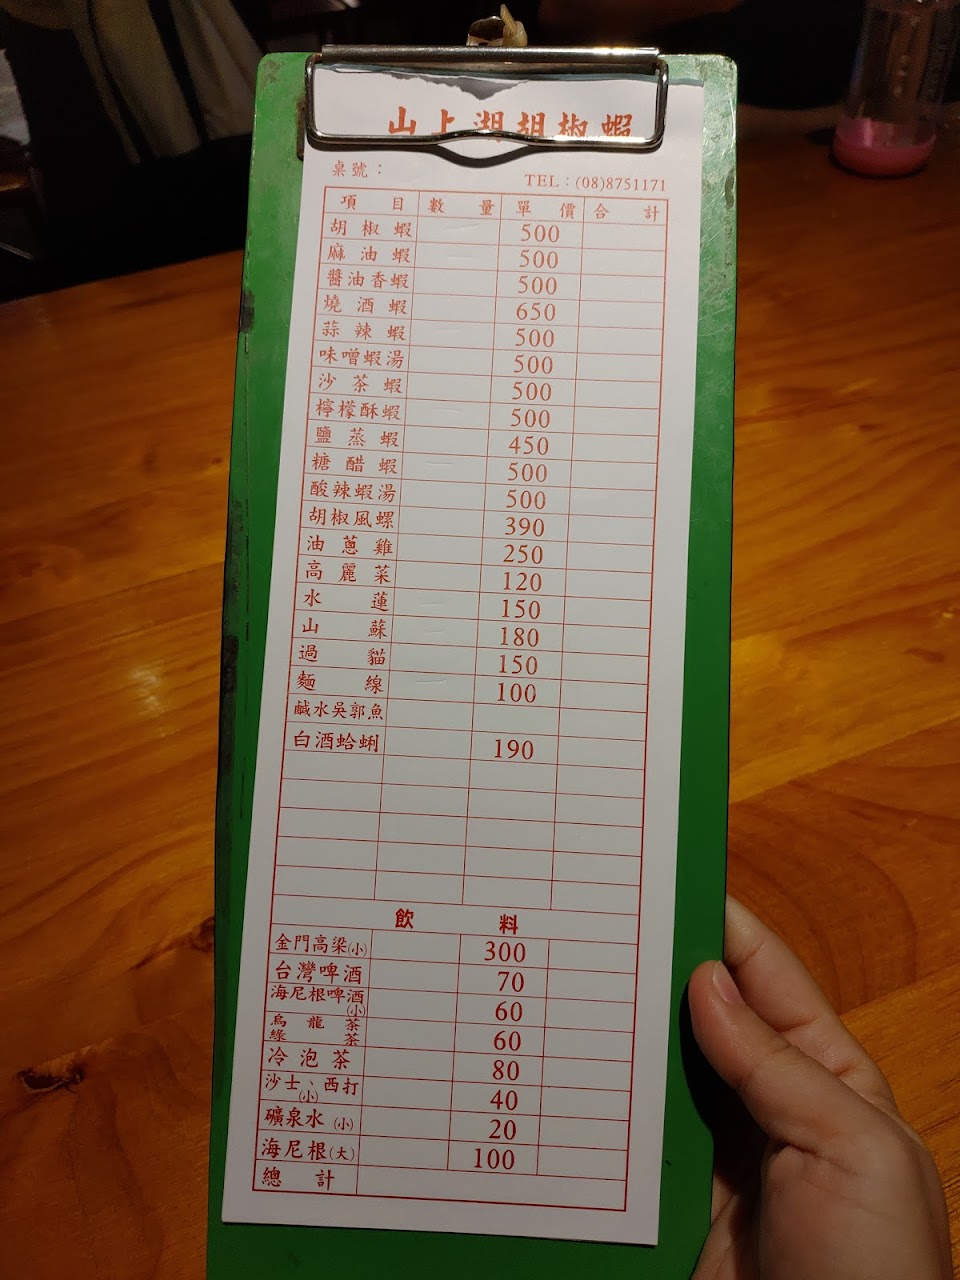 山上湖胡椒蝦
桌號：
TEL：(08)8751171
項目 數量 單價 合計
胡椒蝦 500
麻油蝦 500
醬油香蝦 500
燒酒蝦 650
蒜辣蝦 500
味噌蝦湯 500
沙茶蝦 500
檸檬酥蝦 500
鹽蒸蝦 450
糖醋蝦 500
酸辣蝦湯 500
胡椒風螺 390
油蔥雞 250
高麗菜 120
水蓮 150
山蘇 180
過貓 150
麵線 100
鹹水吳郭魚
白酒蛤蜊 190
飲料
金門高梁(小) 300
台灣啤酒 70
海尼根啤酒(小) 60
烏龍茶
綠茶 60
冷泡茶 80
沙士、西打(小) 40
礦泉水(小) 20
海尼根(大) 100
總計